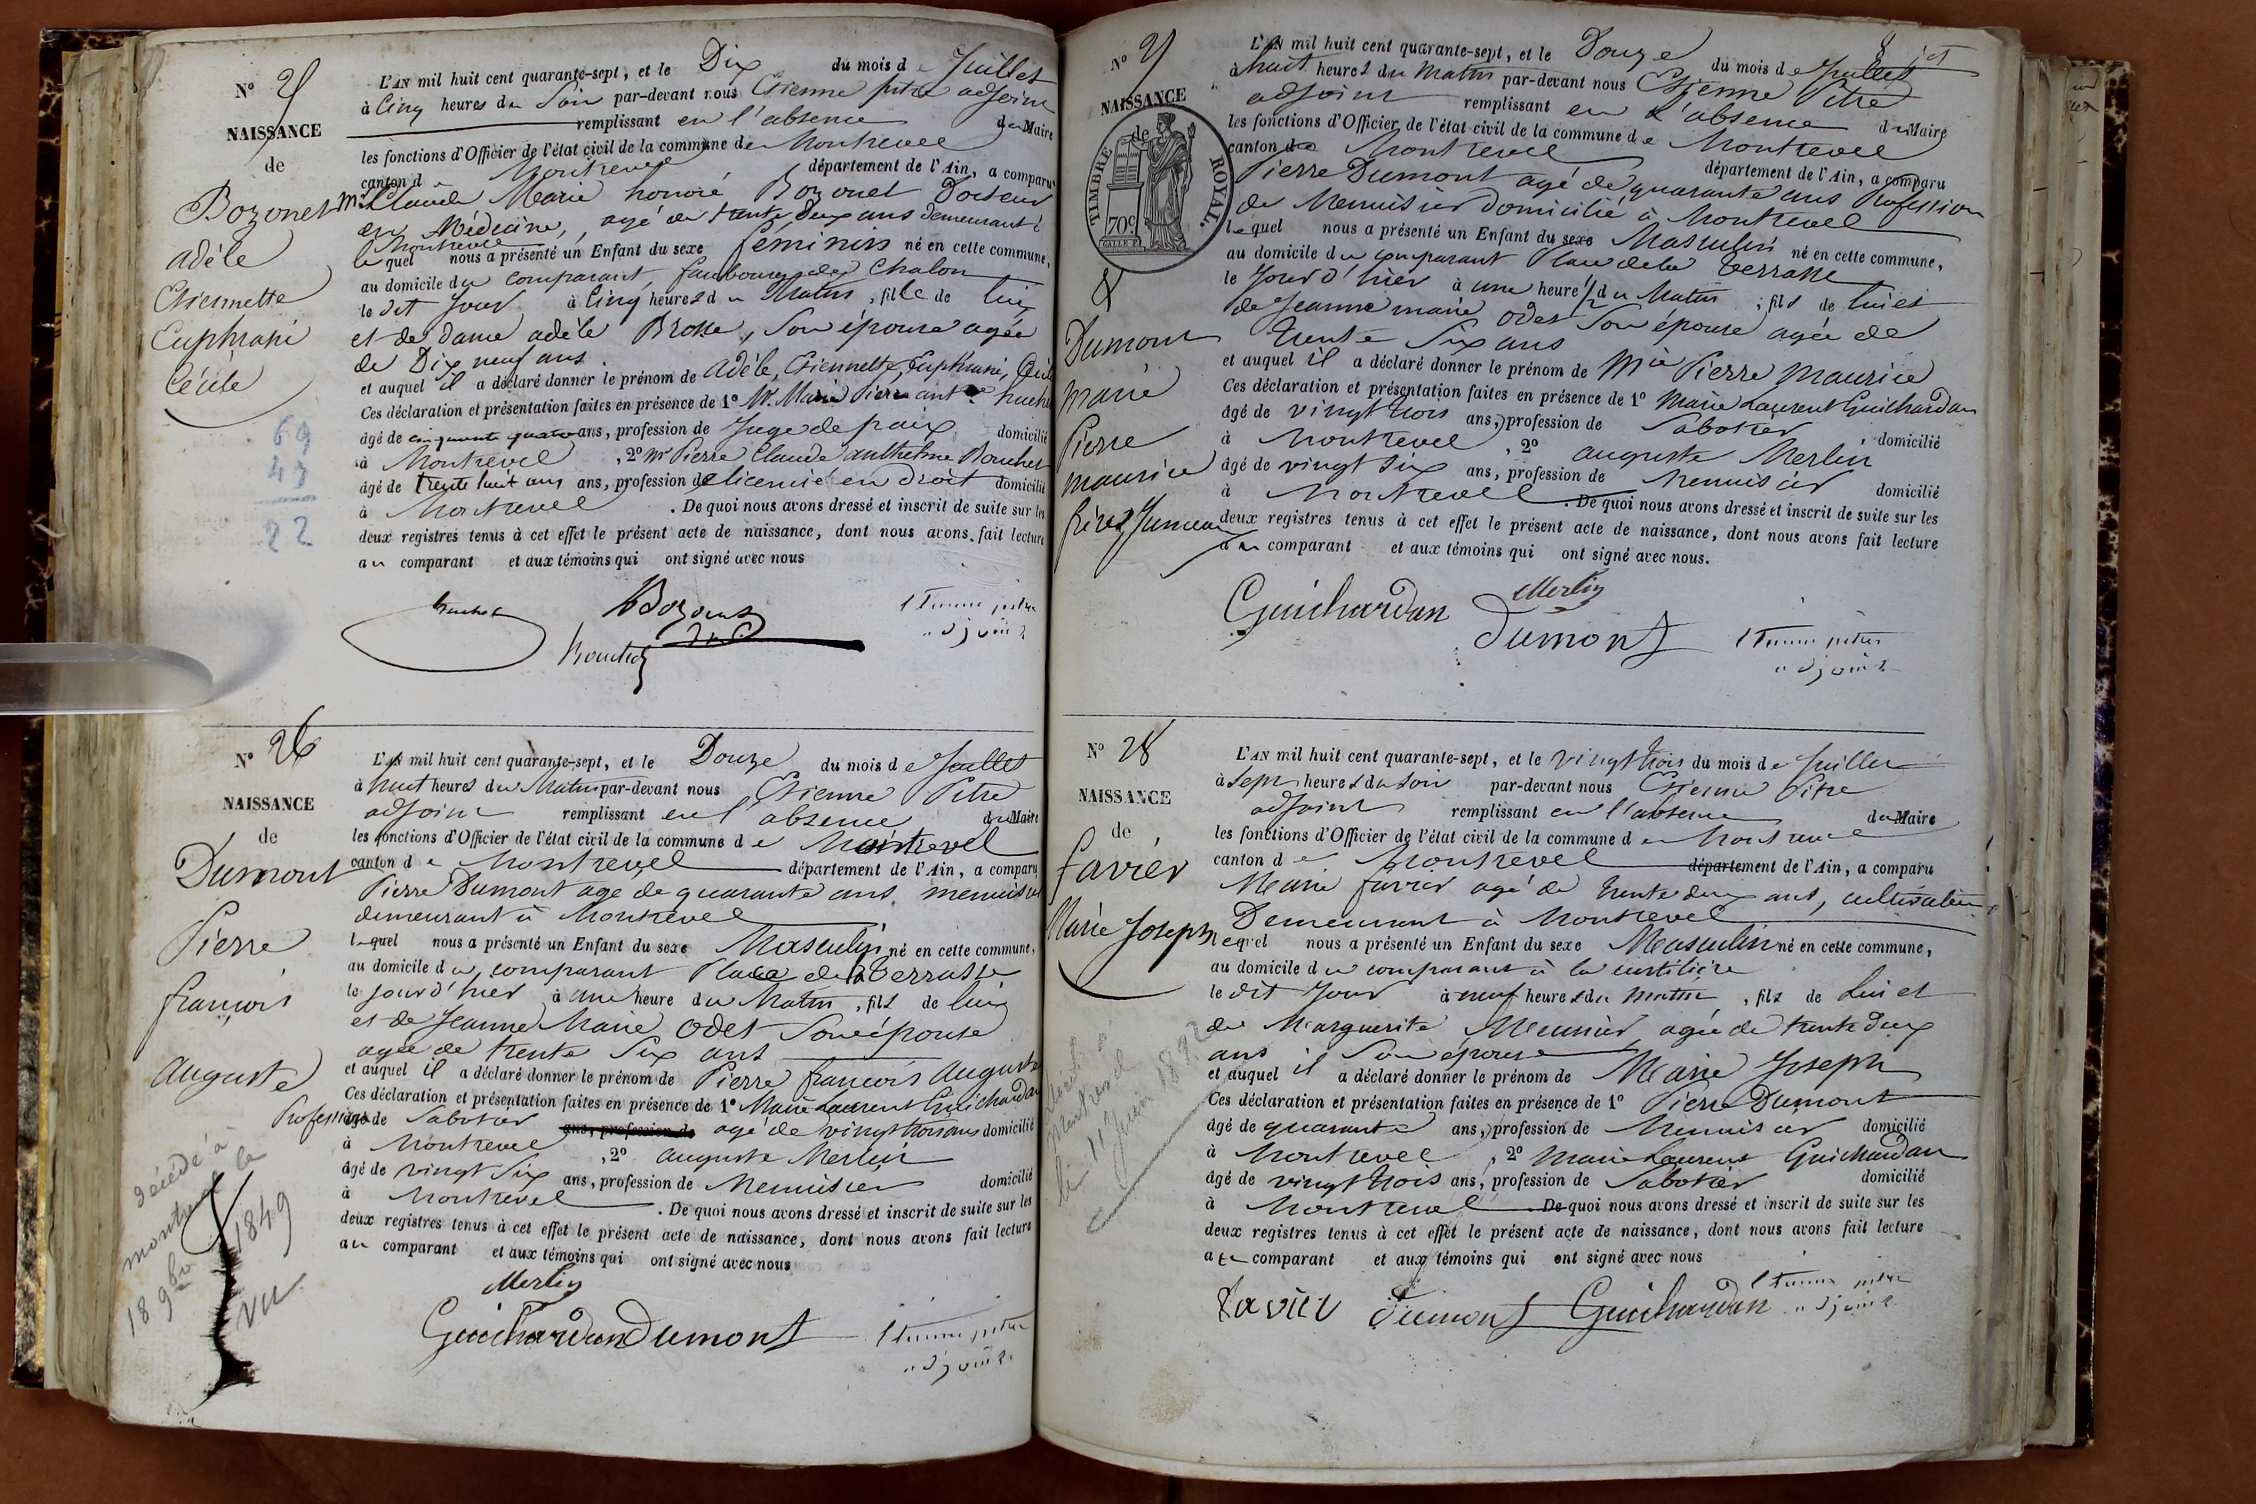 N° 25
NAISSANCE
de
Bozonet
adèle
Etiennette
Euphrasie
Cécile
69
47
22
L'AN mil huit cent quarante-sept, et le Dix du mois de Juillet
à Cinq heures du Soir par-devant nous Etienne pitre adjoint
remplissant en l'absence du Maire
les fonctions d'Officier de l'état civil de la commune de Montrevel
canton d Montrevel département de l'Ain, a comparu
Mr Claude Marie honoré Bozonet Docteur
en Médecine, agé de trente deux ans demeurant à
Montrevel
lequel nous a présenté un Enfant du sexe féminin né en cette commune,
au domicile du comparant, faubourg de Chalon
le dit Jour à Cinq heures du Matin, fille de lui
et de dame adèle Brosse, Son épouse agée
de Dix neuf ans.
et auquel il a déclaré donner le prénom de Adèle, Etiennette, Euphrasie, Cécile
Ces déclaration et présentation faites en présence de 1° Mr. Marie Pierre ant.ne huchet
âgé de cinquante quatre ans, profession de Juge de paix domicilié
à Montrevel, 2° Mr Pierre Claude anthelme Bouchet
âgé de trente huit ans ans, profession de licencié en droit domicilié
à Montrevel. De quoi nous avons dressé et inscrit de suite sur les
deux registres tenus à cet effet le présent acte de naissance, dont nous avons fait lecture
au comparant et aux témoins qui ont signé avec nous
huchet Bozonet
Bouchet
Etienne pitre
adjoint
N° 26
NAISSANCE
de
Dumont
Pierre
françois
Auguste
décédé à
montrevel le
18 9bre 1849
vu
L'AN mil huit cent quarante-sept, et le Douze du mois de Juillet
à huit heures du Matin par-devant nous Etienne Pitre
adjoint remplissant en l'absence du Maire
les fonctions d'Officier de l'état civil de la commune de Montrevel
canton de Montrevel département de l'Ain, a comparu
Pierre Dumont age de quarante ans. menuisier
demeurant à Montrevel
lequel nous a présenté un Enfant du sexe Masculin né en cette commune,
au domicile du comparant Place de la Terrasse
le jour d'hier à une heure du Matin, fils de lui
et de Jeanne Marie Odet Son épouse
agée de trente Six ans
et auquel il a déclaré donner le prénom de Pierre françois Auguste
Ces déclaration et présentation faites en présence de 1° Marie Laurent Guichardan
Profession âgé de Sabotier ans, profession de agé de vingt trois ans domicilié
à Montrevel, 2° auguste Merlin
âgé de vingt Six ans, profession de Menuisier domicilié
à Montrevel. De quoi nous avons dressé et inscrit de suite sur les
deux registres tenus à cet effet le présent acte de naissance, dont nous avons fait lecture
au comparant et aux témoins qui ont signé avec nous
Merlin
Guichardan Dumont Etienne pitre
adjoint
N° 27
NAISSANCE
de
TIMBRE ROYAL.
70c.
Dumont
marie
Pierre
maurice
frères Jumeau
L'AN mil huit cent quarante-sept, et le Douze du mois de Juillet
à huit heures du Matin par-devant nous Etienne Pitre
adjoint remplissant en L'absence du Maire
les fonctions d'Officier de l'état civil de la commune de Montrevel
canton de Montrevel département de l'Ain, a comparu
Pierre Dumont agé de quarante ans Profession
de Menuisier domicilié à Montrevel
lequel nous a présenté un Enfant du sexe Masculin né en cette commune,
au domicile du comparant Place de la Terrasse
le Jour d'hier à une heure 1/2 du Matin, fils de lui et
de Jeanne marie Odet Son épouse agée de
trente Six ans
et auquel il a déclaré donner le prénom de Mie Pierre maurice
Ces déclaration et présentation faites en présence de 1° Marie Laurent Guichardan
âgé de vingt trois ans, profession de Sabotier, domicilié
à Montrevel, 2° auguste Merlin
âgé de vingt Six ans, profession de Menuisier domicilié
à Montrevel. De quoi nous avons dressé et inscrit de suite sur les
deux registres tenus à cet effet le présent acte de naissance, dont nous avons fait lecture
au comparant et aux témoins qui ont signé avec nous.
Guichardan Merlin
Dumont Etienne pitre
adjoint
N° 28
NAISSANCE
de
favier
Marie Joseph
Montrevel
le 11 Juin 1892
L'AN mil huit cent quarante-sept, et le vingt trois du mois de Juillet
à Sept heures du Soir par-devant nous Etienne Pitre
adjoint remplissant en l'absence du Maire
les fonctions d'Officier de l'état civil de la commune de Montrevel
canton de Montrevel département de l'Ain, a comparu
Marie favier agé de trente deux ans, cultivateur
Demeurant à Montrevel
lequel nous a présenté un Enfant du sexe Masculin né en cette commune,
au domicile du comparant à la
le dit Jour à neuf heures du matin, fils de Lui et
de Marguerite Meunier agée de trente deux
ans Son épouse
et auquel il a déclaré donner le prénom de Marie Joseph
Ces déclaration et présentation faites en présence de 1° Pierre Dumont
âgé de quarante ans, profession de Menuisier domicilié
à Montrevel, 2° marie Laurent Guichardan
âgé de vingt trois ans, profession de Sabotier domicilié
à Montrevel. De quoi nous avons dressé et inscrit de suite sur les
deux registres tenus à cet effet le présent acte de naissance, dont nous avons fait lecture
au comparant et aux témoins qui ont signé avec nous
favier Dumont Guichardan Etienne pitre
adjoint